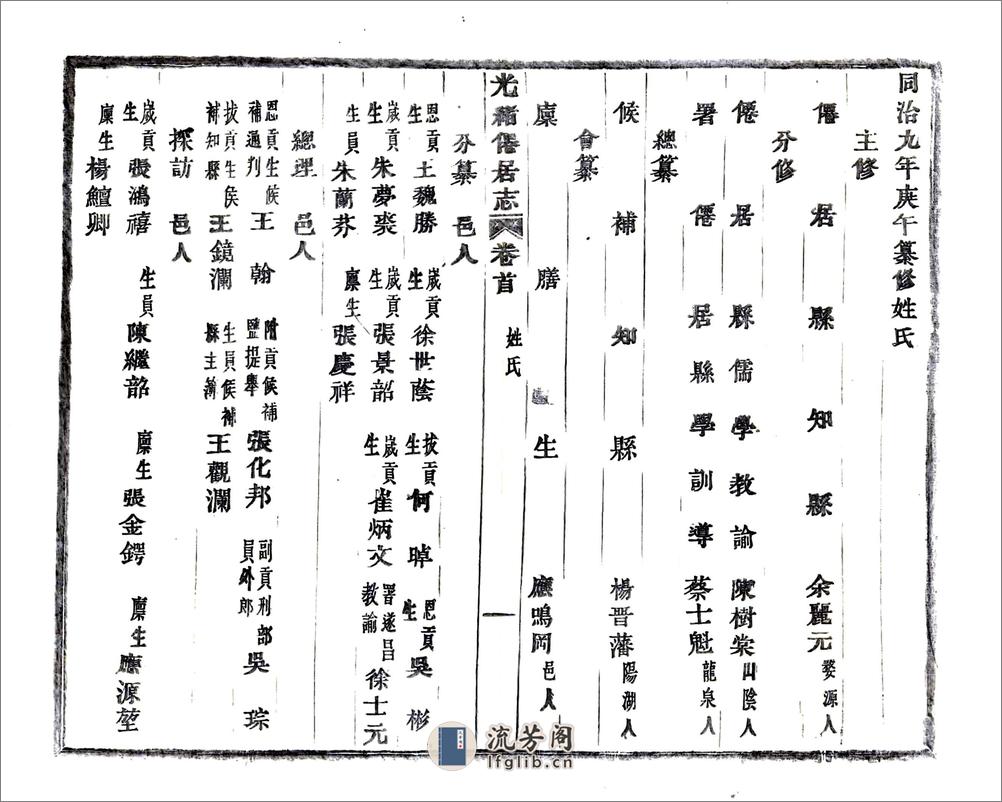 同治九年庚午纂修姓氏
主修
僊居縣知縣 余麗元 婺源人
分修
僊居縣儒學教諭 陳樹棠 山陰人
署僊居縣學訓導 蔡士魁 龍泉人
總纂
候補知縣 楊晋藩 陽湖人
會纂
廩膳生 應鳴岡 邑人
光緒僊居志 卷首 姓氏 一
分纂 邑人
恩貢生 王魏勝 歲貢生 徐世蔭 拔貢生 何晫 恩貢生 吳彬
歲貢生 朱夢裘 歲貢生 張景韶 歲貢生 崔炳文 署遂昌教諭 徐士元
生員 朱蘭芬 廩生 張慶祥
總理 邑人
恩貢生候補通判 王翰 附貢候補鹽提舉 張化邦 副貢刑部員外郎 吳琮
拔貢生候補知縣 王鏡瀾 生員候補縣主簿 王觀瀾
探訪 邑人
歲貢生 張鴻禧 生員 陳繼韶 廩生 張金鍔 廩生 應源堃
廩生 楊鱣卿
流芳阁
lfglib.cn